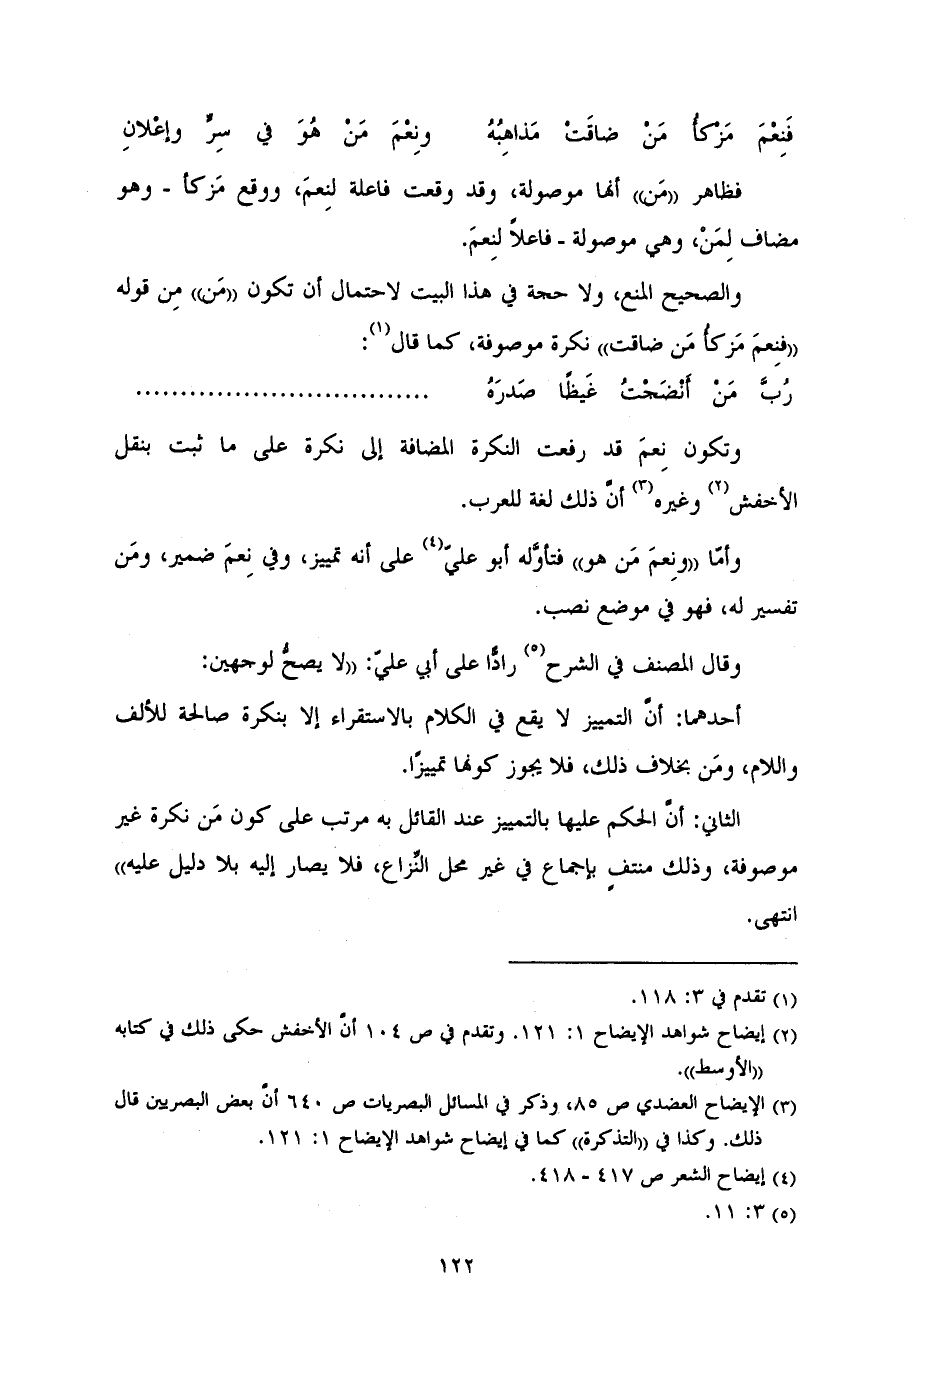 فَنِعْمَ مَزْكأُ مَنْ ضاقَتْ مَذاهِبُهُ ونِعْمَ مَنْ هُوَ في سِرٍّ وإعْلانِ
فظاهر ((مَن)) أنها موصولة، وقد وقعت فاعلة لنِعمَ، ووقع مَزكأ - وهو
مضاف لِمَنْ، وهي موصولة - فاعلاً لنِعمَ.
والصحيح المنع، ولا حجة في هذا البيت لاحتمال أن تكون ((مَن)) مِن قوله
((فنِعمَ مَزكأُ مَن ضاقت)) نكرة موصوفة، كما قال(١):
رُبَّ مَنْ أَنْضَجْتُ غَيظًا صَدرَهُ ................................
وتكون نِعمَ قد رفعت النكرة المضافة إلى نكرة على ما ثبت بنقل
الأخفش(٢) وغيره(٣) أنَّ ذلك لغة للعرب.
وأمّا ((ونِعمَ مَن هو)) فتأوَّله أبو عليّ(٤) على أنه تمييز، وفي نِعمَ ضمير، ومَن
تفسير له، فهو في موضع نصب.
وقال المصنف في الشرح(٥) رادًّا على أبي عليّ: ((لا يصحُّ لوجهين:
أحدهما: أنَّ التمييز لا يقع في الكلام بالاستقراء إلا بنكرة صالحة للألف
واللام، ومَن بخلاف ذلك، فلا يجوز كونها تمييزًا.
الثاني: أنَّ الحكم عليها بالتمييز عند القائل به مرتب على كون مَن نكرة غير
موصوفة، وذلك منتفٍ بإجماع في غير محل النِّزاع، فلا يصار إليه بلا دليل عليه))
انتهى.
(١) تقدم في ٣: ١١٨.
(٢) إيضاح شواهد الإيضاح ١: ١٢١. وتقدم في ص ١٠٤ أنَّ الأخفش حكى ذلك في كتابه
((الأوسط)).
(٣) الإيضاح العضدي ص ٨٥، وذكر في المسائل البصريات ص ٦٤٠ أنَّ بعض البصريين قال
ذلك. وكذا في ((التذكرة)) كما في إيضاح شواهد الإيضاح ١: ١٢١.
(٤) إيضاح الشعر ص ٤١٧ - ٤١٨.
(٥) ٣: ١١.
١٢٢